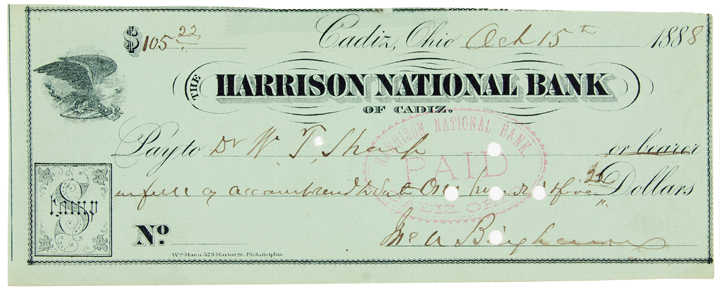 $105 22 Cadiz, Ohio Oct 15th 1888
THE HARRISON NATIONAL BANK
OF CADIZ.
Pay to Dr W. T. Sharp or bearer
in full of account and One hundred & five 22 Dollars
HARRISON NATIONAL BANK
PAID
CADIZ, OHIO
No.
Jno A Bingham
Wm Mann 529 Market St. Philadelphia.